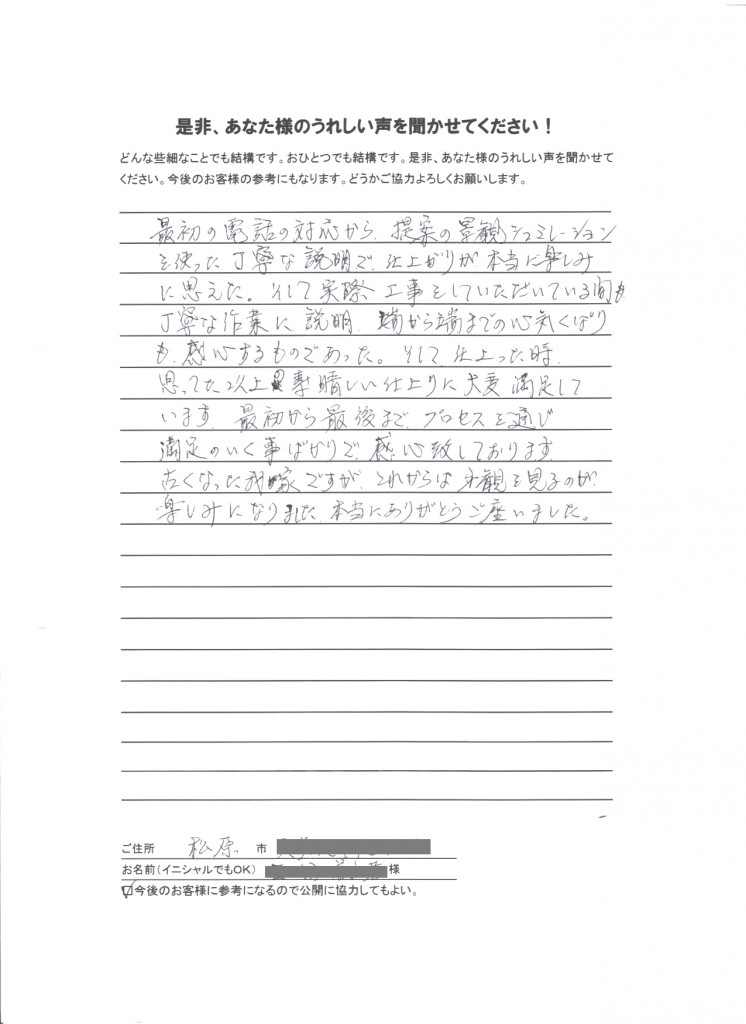 是非、あなた様のうれしい声を聞かせてください！
どんな些細なことでも結構です。おひとつでも結構です。是非、あなた様のうれしい声を聞かせて
ください。今後のお客様の参考にもなります。どうかご協力よろしくお願いします。
最初の電話の対応から、提案の景観シュミレーション
を使った丁寧な説明で、仕上がりが本当に楽しみ
に思えた。そして実際工事をしていただいている間も
丁寧な作業に説明、端から端までの心気くばり
も、感心するものであった。そして、仕上った時、
思ってた以上の素晴しい仕上りに大変満足して
います。最初から最後まで、プロセスを通じ
満足のいく事ばかりで、感心致しております
古くなった我家ですが、これからは外観を見るのが、
楽しみになりました、本当にありがとうご座いました。
ご住所 松原 市
お名前（イニシャルでもOK） 様
☑今後のお客様に参考になるので公開に協力してもよい。